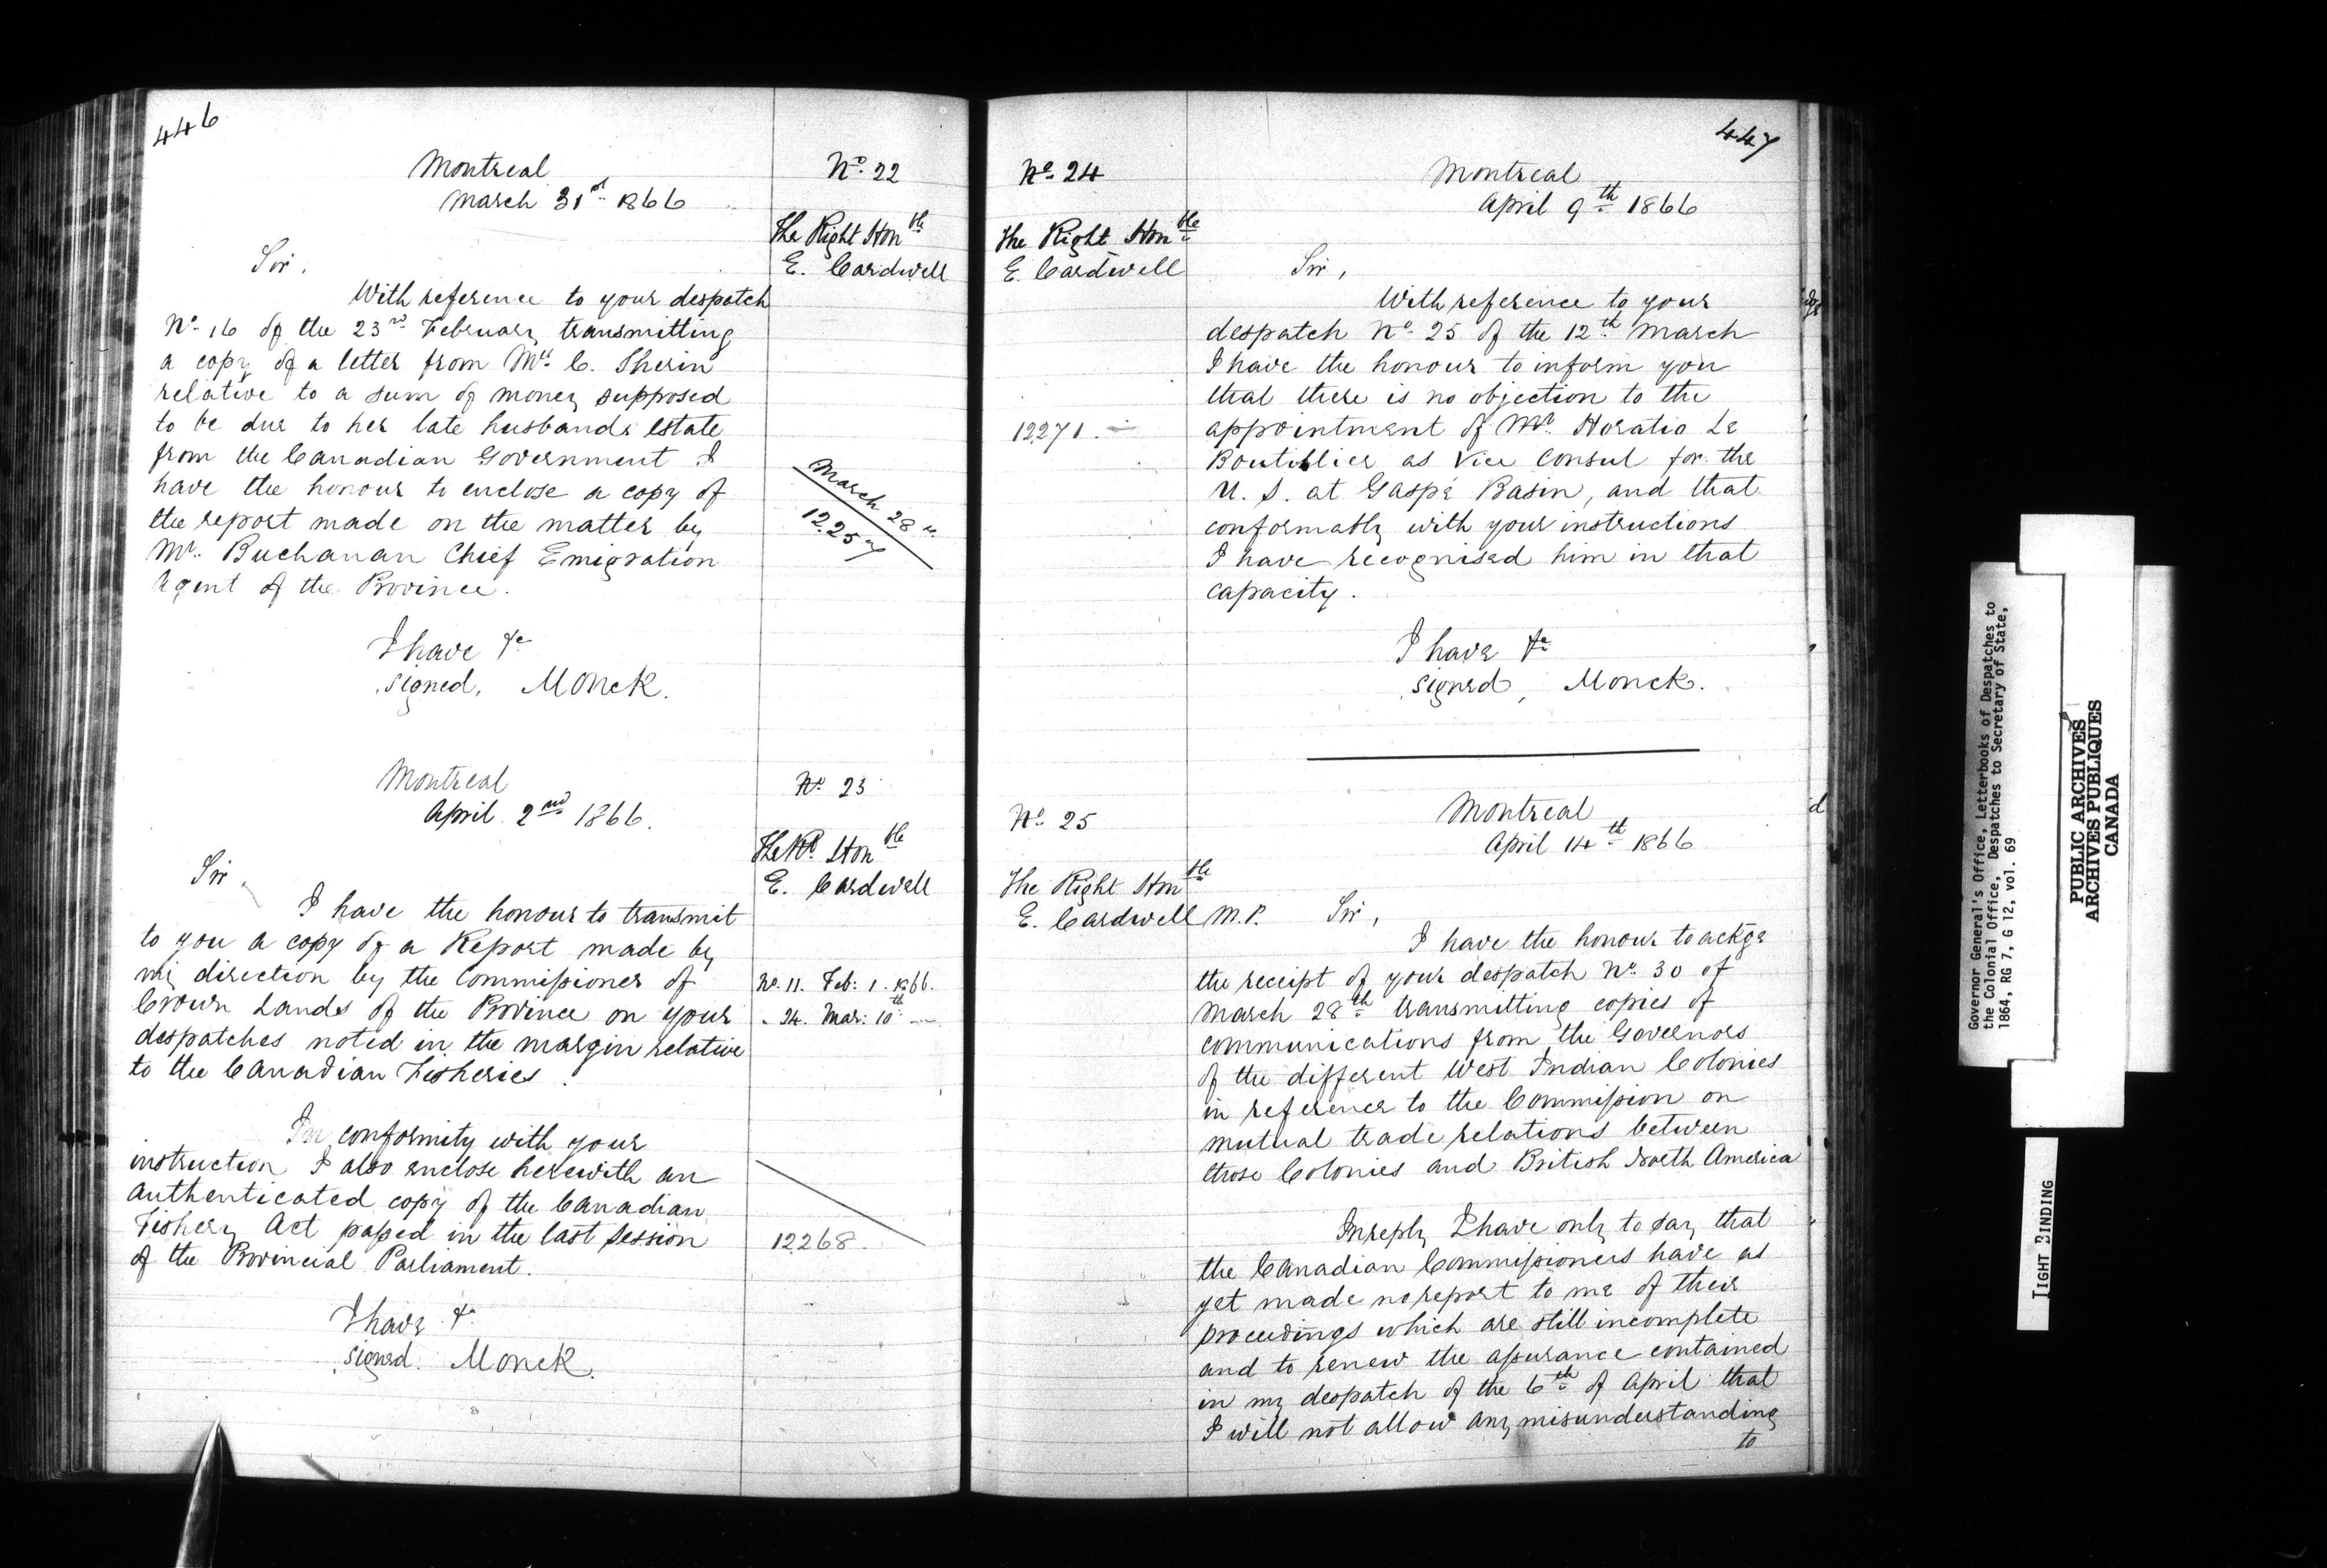 446
Montreal
March 31st 1866
No. 22
The Right Honble
E. Cardwell
Sir,
With reference to your despatch
No. 16 of the 23rd February transmitting
a copy of a letter from Mrs. C. Sherin
relative to a sum of money supposed
to be due to her late husbands estate
from the Canadian Government I
have the honour to enclose a copy of
the report made on the matter by
Mr. Buchanan Chief Emigration
Agent of the Province.
March 28
12257
I have &c
signed, Monck.
Montreal
April 2nd 1866.
No. 23
The Rt. Honble
E. Cardwell
Sir,
I have the honour to transmit
to you a copy of a Report made by
my direction by the Commissioner of
Crown Lands of the Province on your
despatches noted in the margin relative
to the Canadian Fisheries.
No. 11. Feb: 1. 1866.
" 24. Mar: 10th —
In conformity with your
instruction I also enclose herewith an
authenticated copy of the Canadian
Fishery Act passed in the last Session
of the Provincial Parliament.
12268.
I have &c
signed. Monck.
447
No. 24
The Right Honble
E. Cardwell
Montreal
April 9th 1866
Sir,
With reference to your
despatch No. 25 of the 12th March
I have the honour to inform you
that there is no objection to the
appointment of Mr. Horatio Le
Boutillier as Vice Consul for the
U. S. at Gaspé Basin, and that
conformably with your instructions
I have recognised him in that
capacity.
12271. —
I have &c
signed, Monck.
No. 25
The Right Honble
E. Cardwell M.P.
Montreal
April 14th 1866
Sir,
I have the honour to ackge
the receipt of your despatch No. 30 of
March 28th transmitting copies of
communications from the Governors
of the different West Indian Colonies
in reference to the Commission on
mutual trade relations between
those Colonies and British North America
In reply I have only to say that
the Canadian Commissioners have as
yet made no report to me of their
proceedings which are still incomplete
and to renew the assurance contained
in my despatch of the 6th of April that
I will not allow any misunderstanding
to
Governor General's Office, Letterbooks of Despatches to
the Colonial Office, Despatches to Secretary of State,
1864, RG 7, G 12, vol. 69
PUBLIC ARCHIVES
ARCHIVES PUBLIQUES
CANADA
TIGHT BINDING